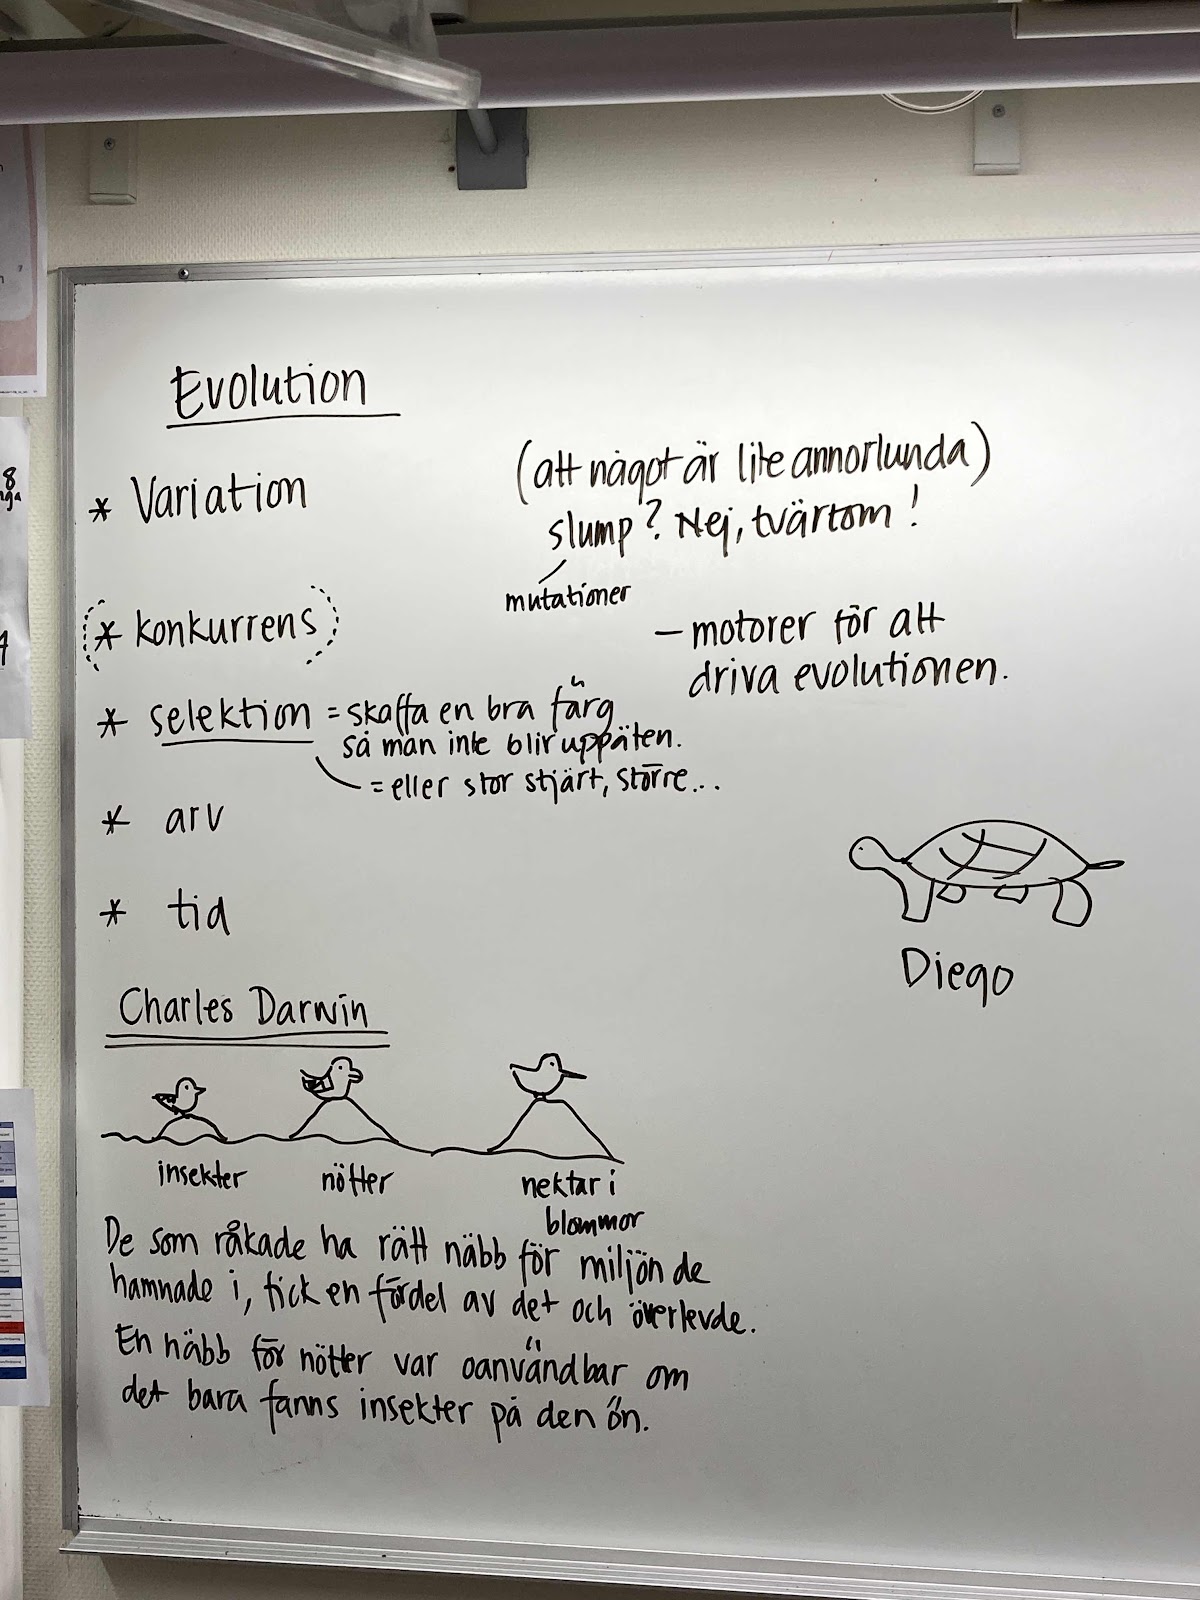 Evolution
* Variation
(att något är lite annorlunda)
slump? Nej, tvärtom!
mutationer
* konkurrens
– motorer för att
driva evolutionen.
* selektion = skaffa en bra färg
så man inte blir uppäten.
= eller stor stjärt, större...
* arv
* tid
Diego
Charles Darwin
insekter
nötter
nektar i
blommor
De som råkade ha rätt näbb för miljön de
hamnade i, fick en fördel av det och överlevde.
En näbb för nötter var oanvändbar om
det bara fanns insekter på den ön.
8